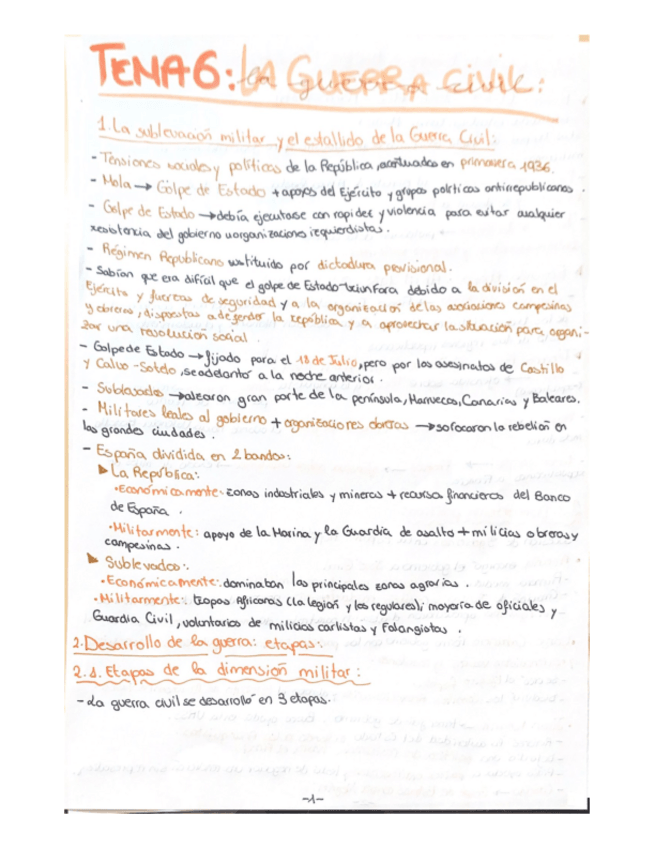 TEMA 6: LA GUERRA CIVIL:
la guerra civil
1. La sublevación militar y el estallido de la Guerra Civil:
- Tensiones sociales y políticas de la República, acentuadas en primavera 1936.
- Mola → Golpe de Estado + apoyos del Ejército y grupos políticos antirrepublicanos.
- Golpe de Estado → debía ejecutarse con rapidez y violencia para evitar cualquier
resistencia del gobierno u organizaciones izquierdistas.
- Régimen Republicano sustituido por dictadura provisional.
- Sabían que era difícil que el golpe de Estado triunfara debido a la división en el
Ejército y fuerzas de seguridad y a la organización de las asociaciones campesinas
y obreras, dispuestas a defender la república y a aprovechar la situación para organi-
zar una revolución social.
- Golpe de Estado → fijado para el 18 de Julio, pero por los asesinatos de Castillo
y Calvo-Sotelo, se adelantó a la noche anterior.
- Sublevados → alzaron gran parte de la península, Marruecos, Canarias y Baleares.
- Militares leales al gobierno + organizaciones obreras → sofocaron la rebelión en
las grandes ciudades.
- España dividida en 2 bandos:
▶ La República:
• Económicamente: zonas industriales y mineras + recursos financieros del Banco
de España.
• Militarmente: apoyo de la Marina y la Guardia de asalto + milicias obreras y
campesinas.
▶ Sublevados:
• Económicamente: dominaban las principales zonas agrarias.
• Militarmente: tropas africanas (la legión y los regulares); mayoría de oficiales y
Guardia Civil, voluntarios de milicias carlistas y Falangistas.
2. Desarrollo de la guerra: etapas:
2.1. Etapas de la dimensión militar:
- La guerra civil se desarrolló en 3 etapas.
-1-